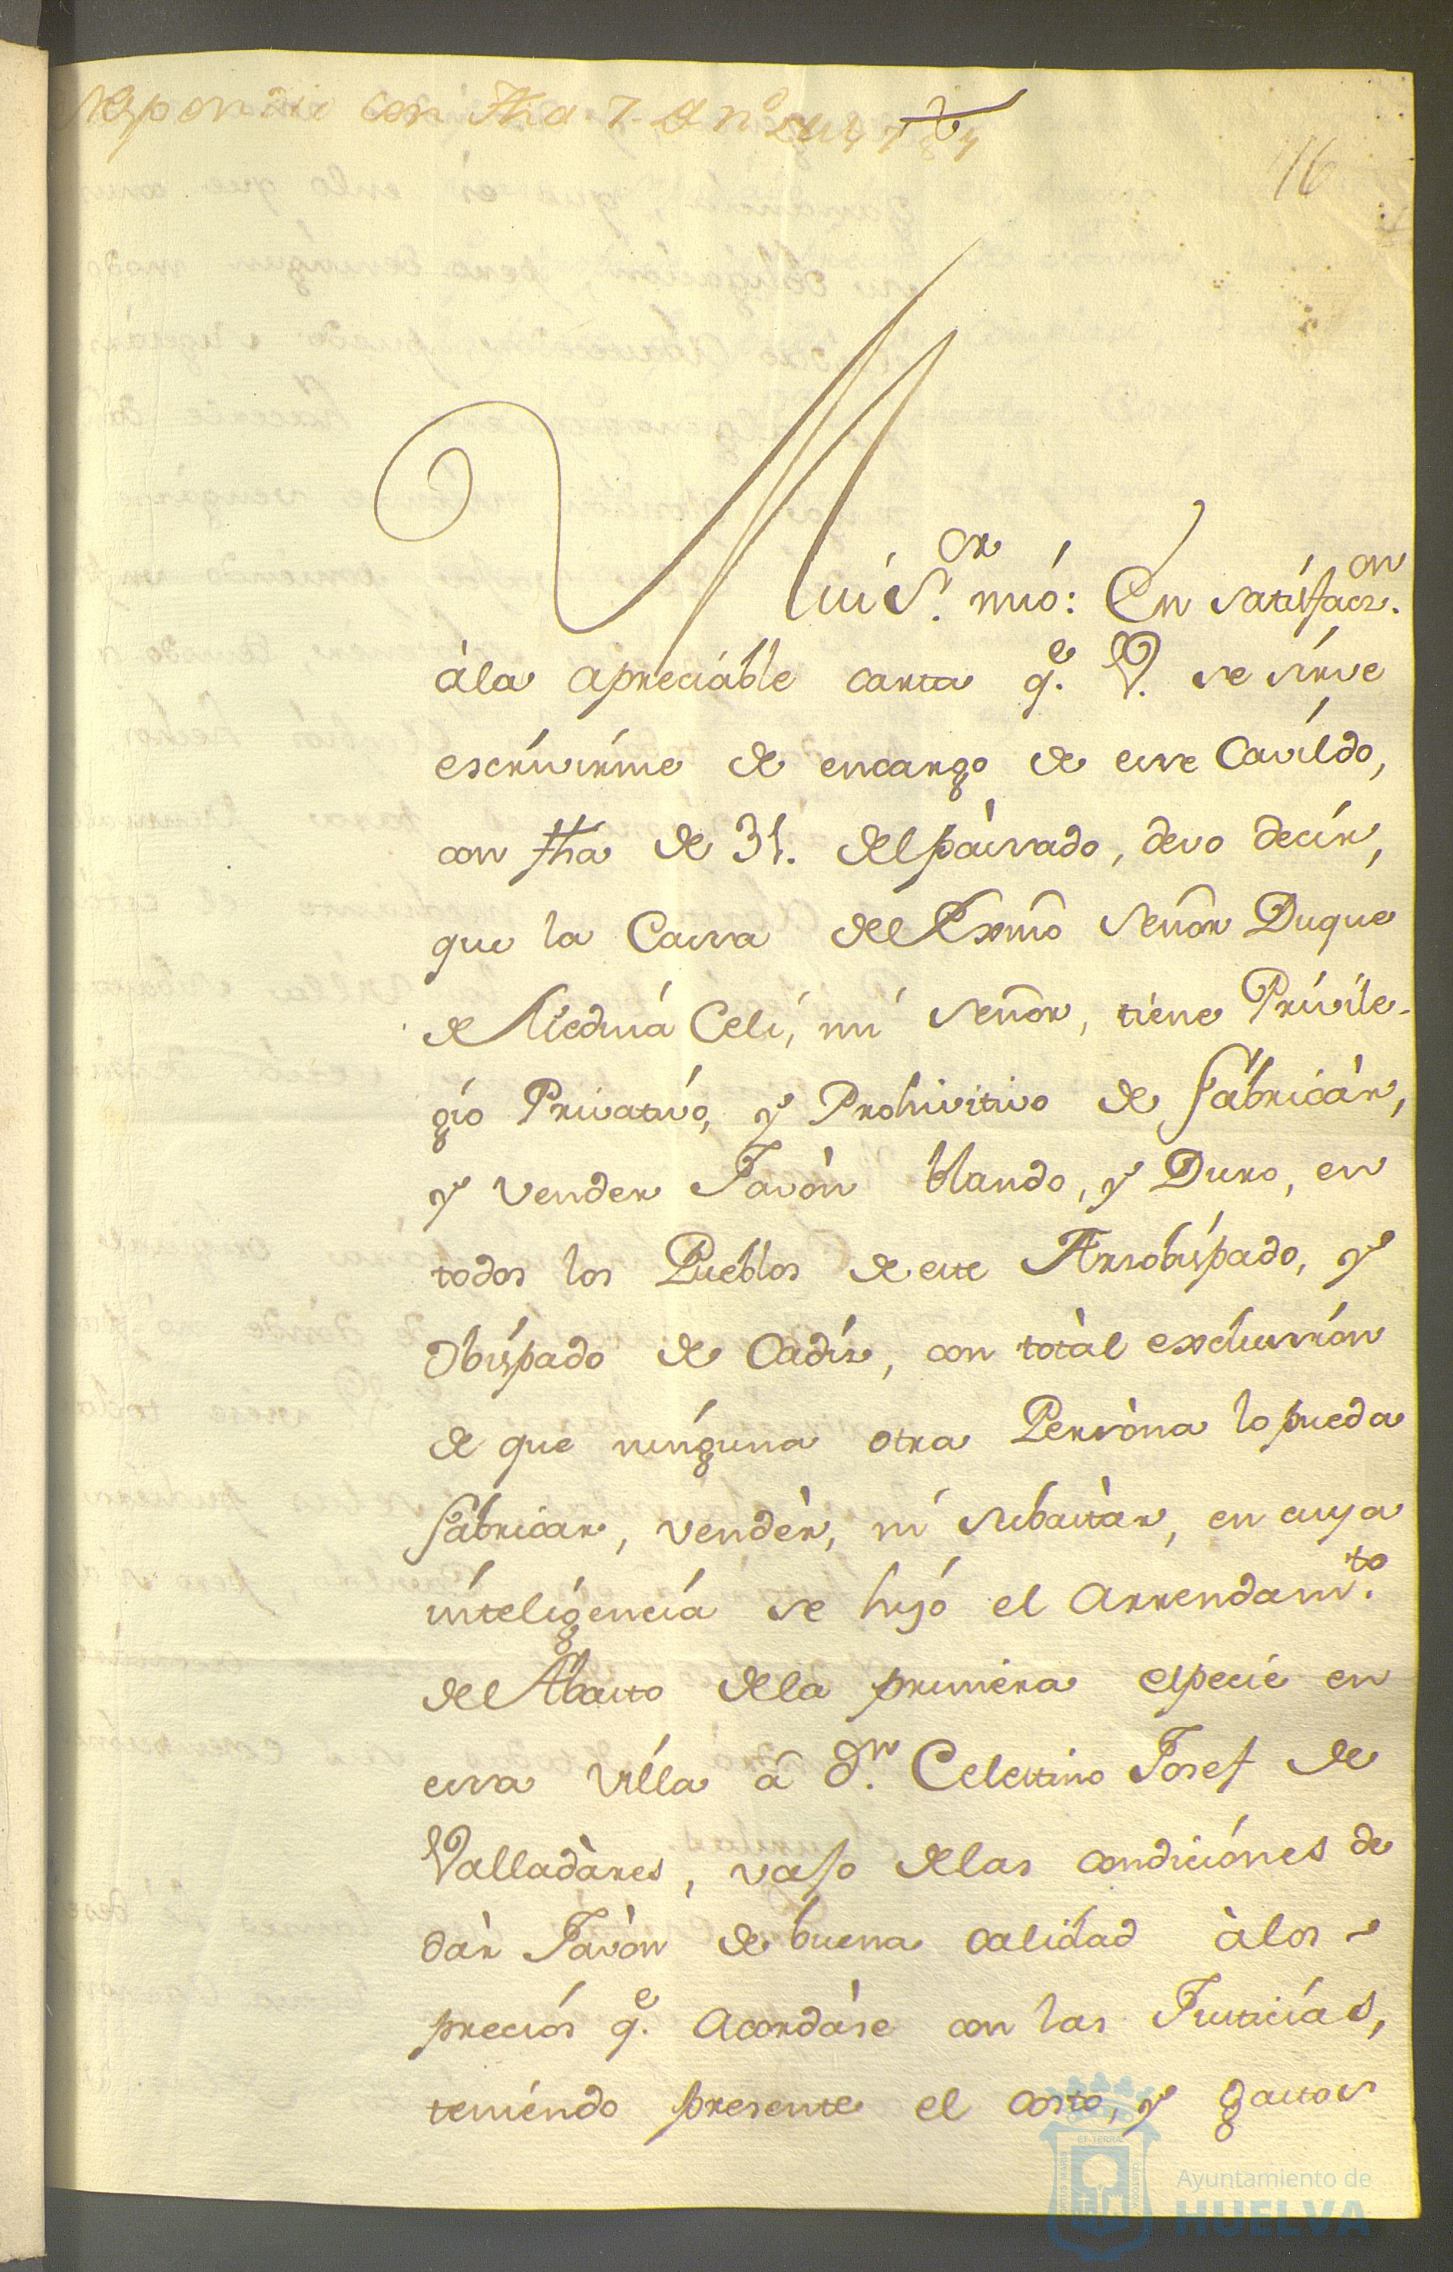 con fha 7. de
16
Mui S.or mió: En satisfacz.on
àla apreciáble carta q.e V. se sírve
escrívírme de encargo de ese Cavíldo,
con fha de 31. del pàssado, devo decír,
que la Cassa del Exmô Señor Duque
de Medína Celí, mí Señor, tiene Prívíle-
gío Privatívo, y Prohivitivo de fábricàr,
y vender Javòn blando, y Duro, en
todos los Pueblos de este Arzobíspado, y
Obíspado de Cadíz, con totàl exclussíon
de que nínguna otra Persòna lo pueda
fàbricar, vendèr, ní subastàr, en cuya
ínteligencía se hizó el Arrendam.to
del Abasto dela primèra especie en
essa Villa â D.n Celestino Josef de
Valladàres, vajo delas condiciónes de
dàr Javòn de buena calidad àlos
preciós q.e Acordàse con las Justicías,
teniéndo presente el costo, y gastos
ET TERRAE
Ayuntamiento de
HUELVA